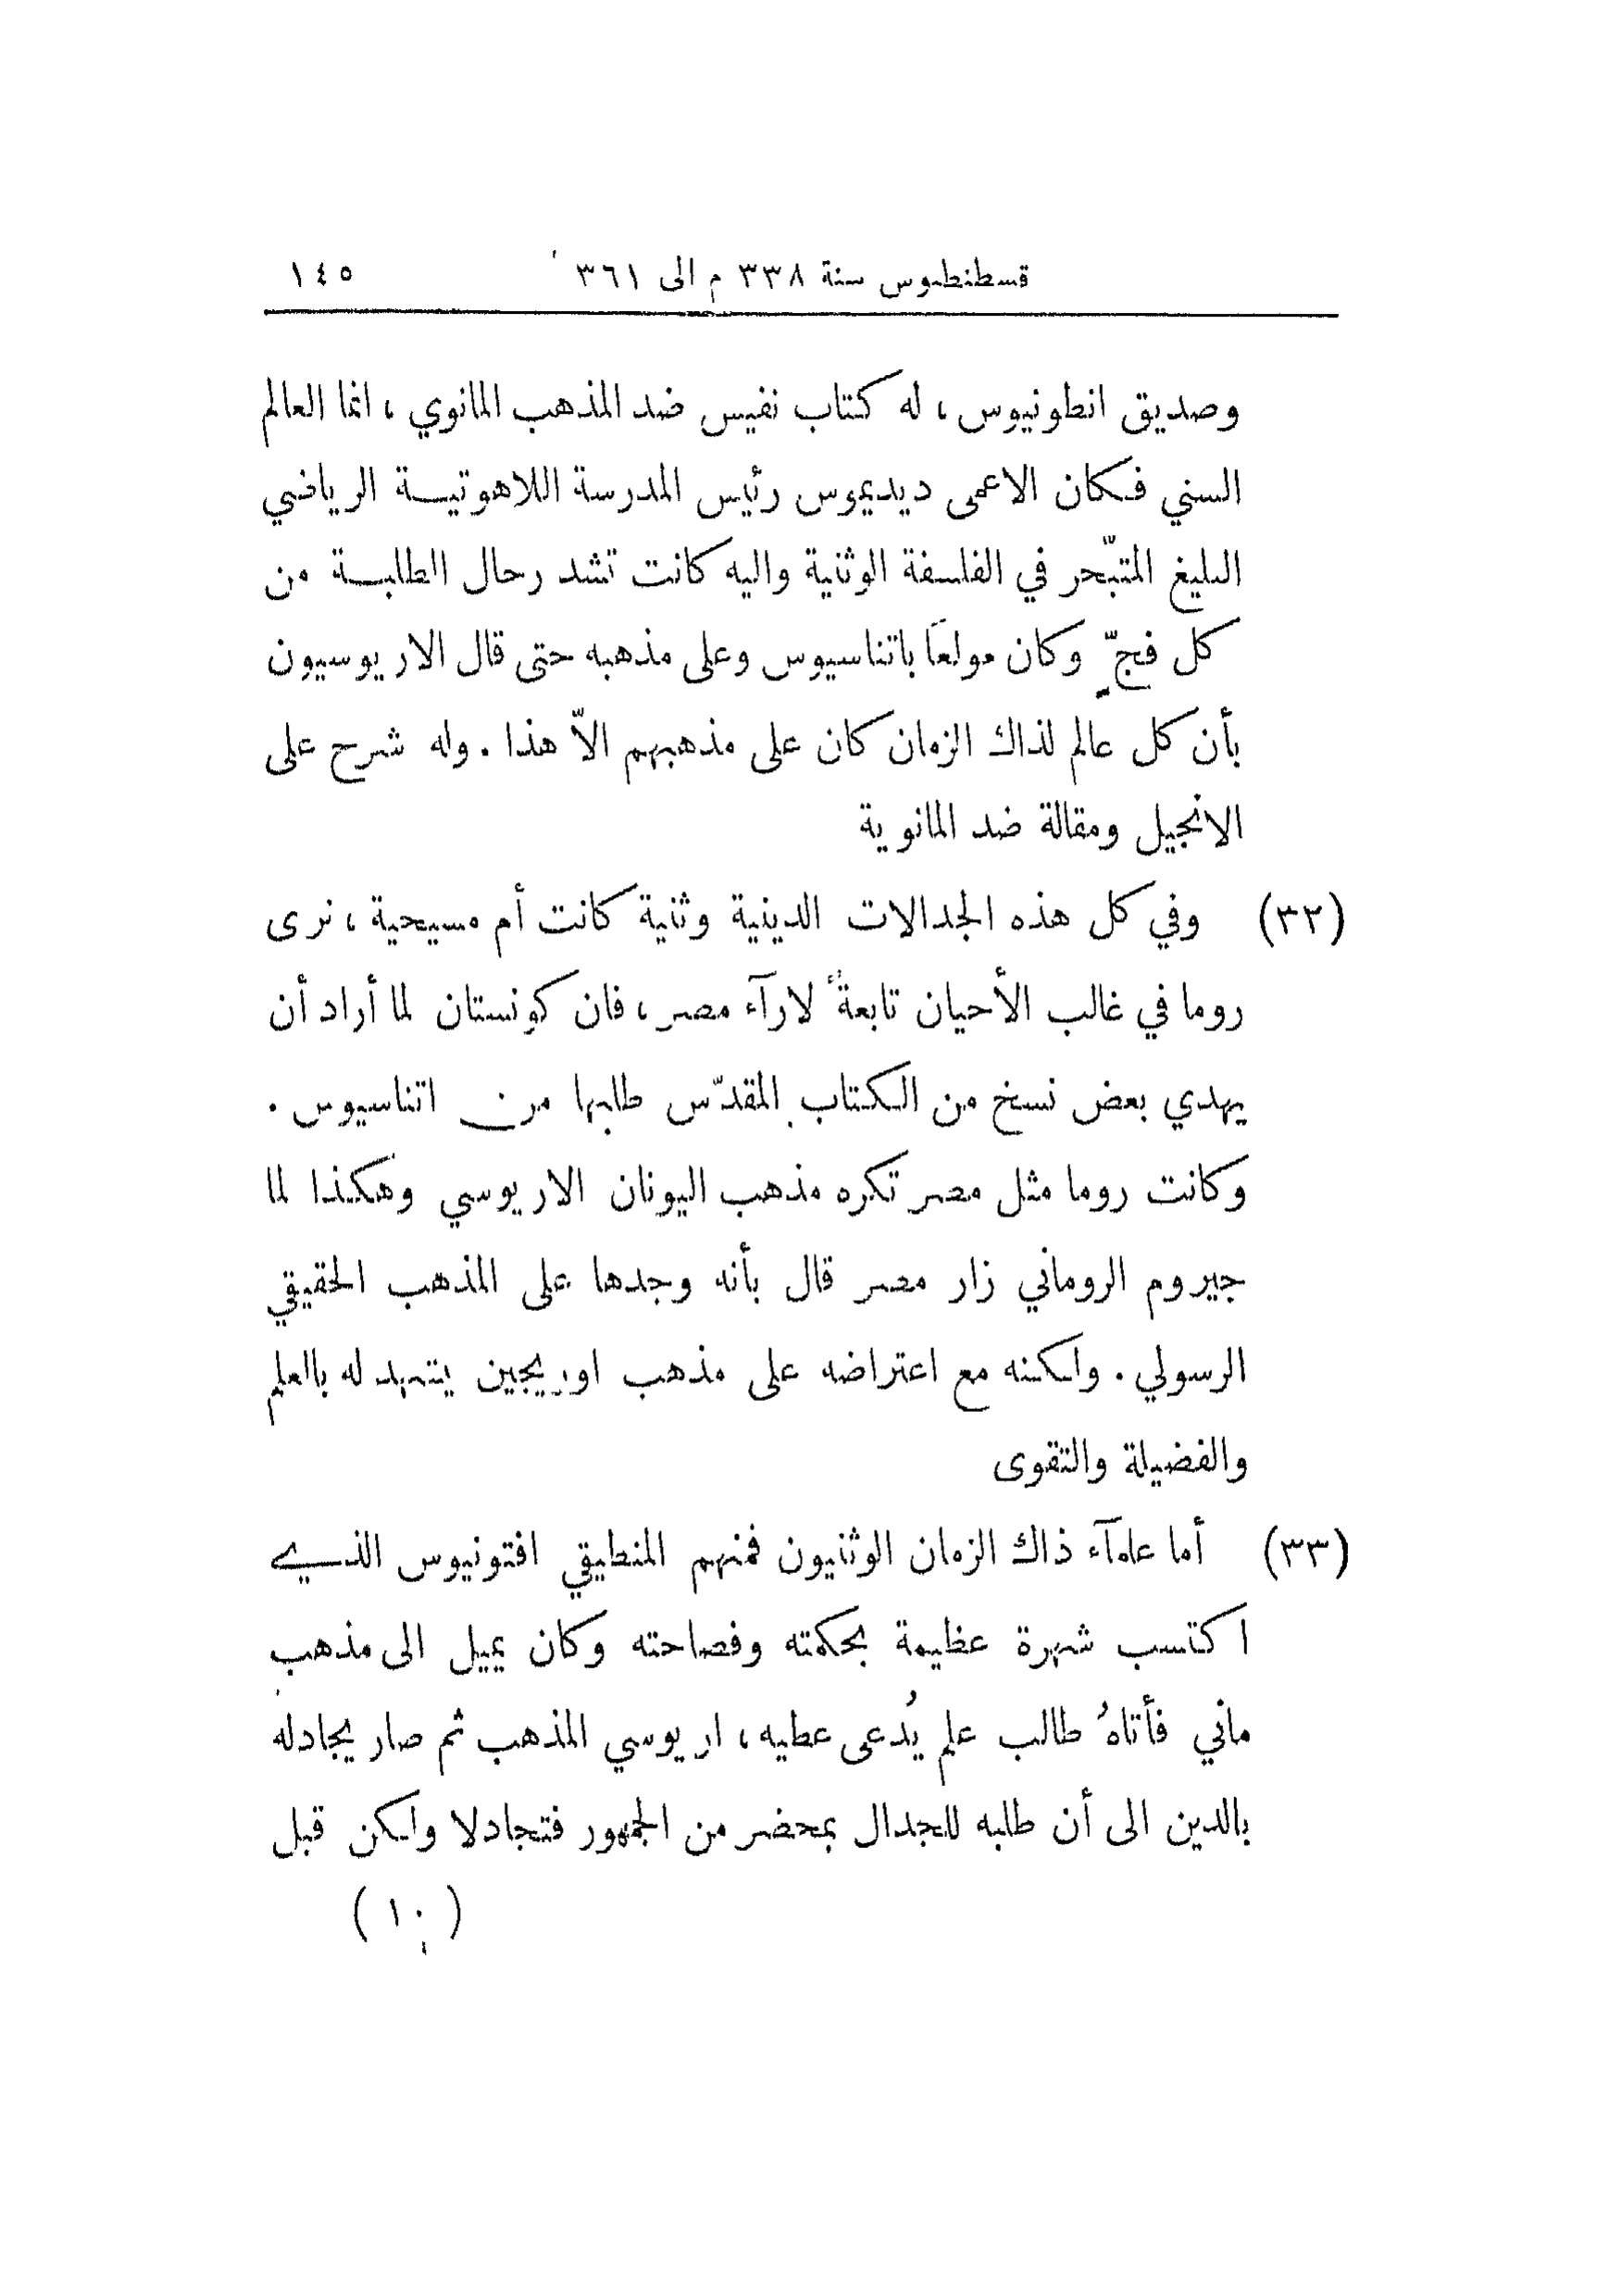 قسطنطوس سنة ٣٣٨ م الى ٣٦١ ١٤٥
وصديق انطونيوس ، له كتاب نفيس ضد المذهب المانوي ، انما العالم
السني فكان الاعمى ديديموس رئيس المدرسة اللاهوتية الرياضي
البليغ المتبّحر في الفلسفة الوثنية واليه كانت تشد رحال الطلبة من
كل فجّ وكان مولعاً باتناسيوس وعلى مذهبه حتى قال الاريوسيون
بأن كل عالم لذاك الزمان كان على مذهبهم الاّ هذا . وله شرح على
الانجيل ومقالة ضد المانوية
(٣٢) وفي كل هذه الجدالات الدينية وثنية كانت أم مسيحية ، نرى
روما في غالب الأحيان تابعةً لارآء مصر ، فان كونستان لما أراد أن
يهدي بعض نسخ من الكتاب المقدّس طلبها من اتناسيوس .
وكانت روما مثل مصر تكره مذهب اليونان الاريوسي وهكذا لما
جيروم الروماني زار مصر قال بأنه وجدها على المذهب الحقيقي
الرسولي . ولكنه مع اعتراضه على مذهب اوريجين يتهد له بالعلم
والفضيلة والتقوى
(٣٣) أما علمآء ذاك الزمان الوثنيون فمنهم المنطيقي افتونيوس الذي
اكتسب شهرة عظيمة بحكمته وفصاحته وكان يميل الى مذهب
ماني فأتاهُ طالب علم يُدعى عطيه ، اريوسي المذهب ثم صار يجادله
بالدين الى أن طلبه للجدال بمحضر من الجمهور فتجادلا ولكن قبل
( ١٠ )